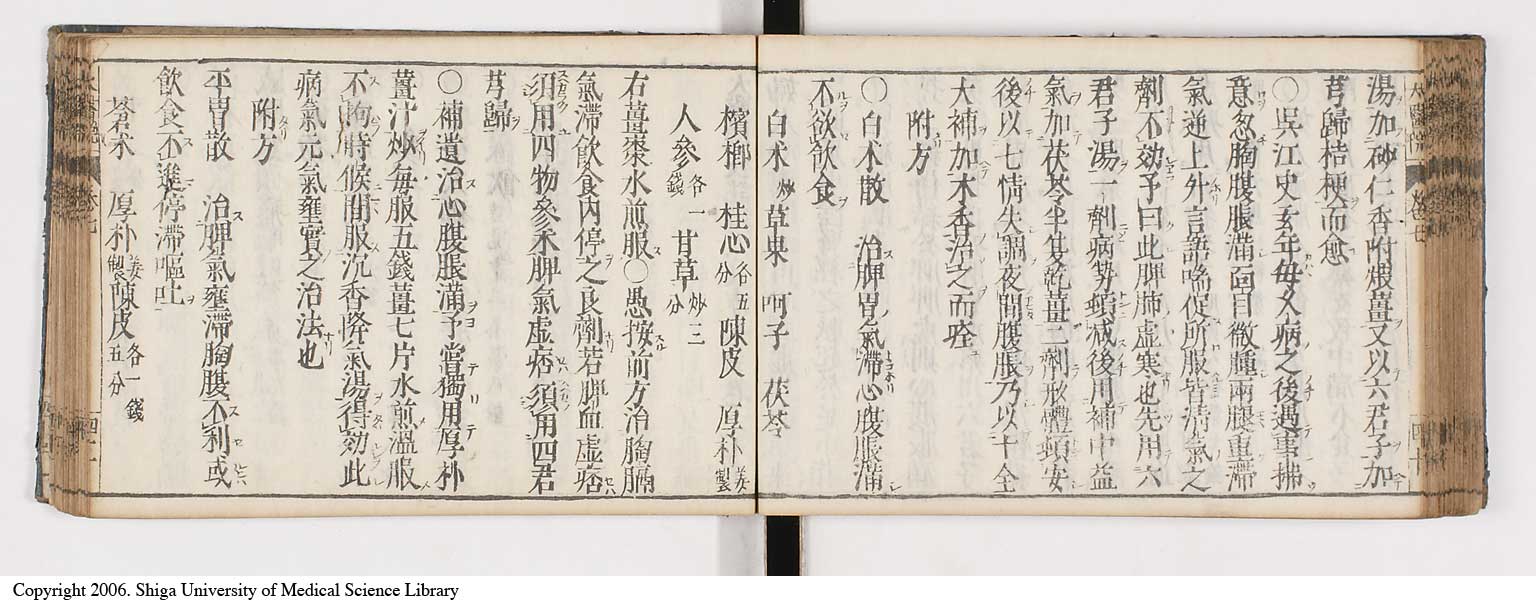 湯加砂仁香附煨薑又以六君子加
芎歸桔梗而愈
〇呉江史玄年母久病之後遇事拂
意忽胸腹脹滿面目微腫兩腿重滯
氣逆上升言語喘促所服皆清氣之
劑不効予曰此脾肺虛寒也先用六
君子湯一劑病勢頓減後用補中益
氣加茯苓半夏乾薑二劑形體頓安
後以七情失調夜間腹脹乃以十全
大補加木香治之而痊
附方
〇白朮散 治脾胃氣滯心腹脹滿
不欲飲食
白朮炒 草果 呵子 茯苓
檳榔 桂心各五分 陳皮 厚朴姜製
人參各一錢 甘草炒三分
右薑棗水煎服〇愚按前方治胸膈
氣滯飲食內停之良劑若脾血虛痞
須用四物參朮脾氣虛痞須用四君
芎歸
〇補遺治心腹脹滿予嘗獨用厚朴
薑汁炒每服五錢薑七片水煎溫服
不拘時候間服沉香降氣湯得効此
病氣元氣壅實之治法也
附方
平胃散 治脾氣壅滯胸腹不利或
飲食不進停滯嘔吐
蒼朮 厚朴姜製 陳皮各一錢五分
Copyright 2006. Shiga University of Medical Science Library